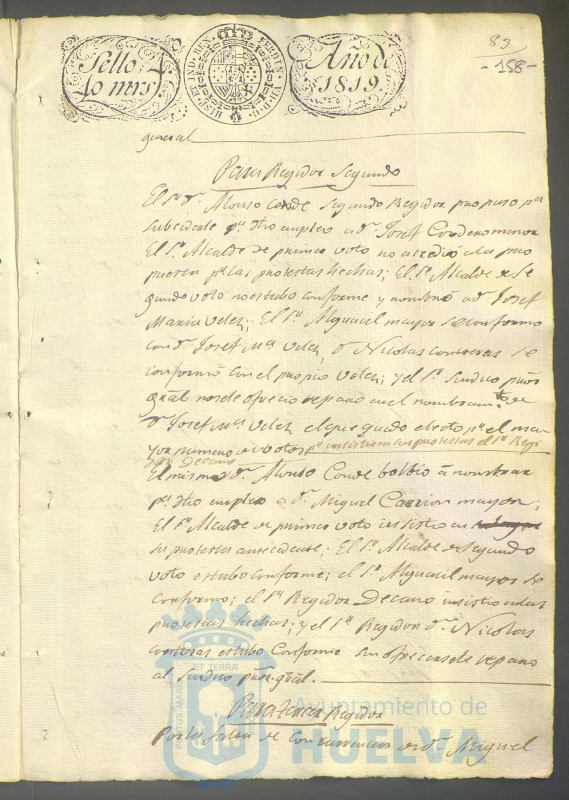 83
-158-
Sello 4.
40 mrs.
HISP. ET IND. REX. FERDIN. VII. D. G.
Año de
1819.
general
Para Regidor Segundo
El Sr. Dn. Alonso Conde Segundo Regidor propuso pa.
subcederle pa. dho empleo a Dn. Josef Cordero menor
El Sr. Alcalde de primer voto no acedió a la pro
puesta pr. las protestas hechas; El Sr. Alcalde de Se
gundo voto no estubo conforme y nombró a dn. Josef
Maria Velez; El Sr. Alguacil mayor se conformo
con Dn. Josef Ma. Velez, Dn. Nicolas Contreras se
conformó con el propio Velez; y el Sr. Sindico procr.
gral no se le ofrecio reparo en el nombramto. de
Dn. Josef Ma. Velez el que quedo electo pr. el ma
yor numero de votos pr. insistir en sus protestas el Sr. Regi
dor Decano
El mismo Dn. Alonso Conde bolbió á nombrar
pa. dho empleo a Dn. Miguel Carrion mayor;
El Sr. Alcalde de primer voto insistio en
su protesta antecedente; El Sr. Alcalde de Segundo
voto estubo conforme; el Sr. Alguacil mayor se
conformo; el Sr. Regidor Decano insistio en las
protestas hechas; y el Sr. Regidor Dn. Nicolas
Contreras estubo conforme sin ofrecersele reparo
al Sindico procr. gral.
Para tercer Regidor
Por la falta de concurrencia de Dn. Miguel
PORTUS MARIS ET TERRÆ
Ayuntamiento de
HUELVA